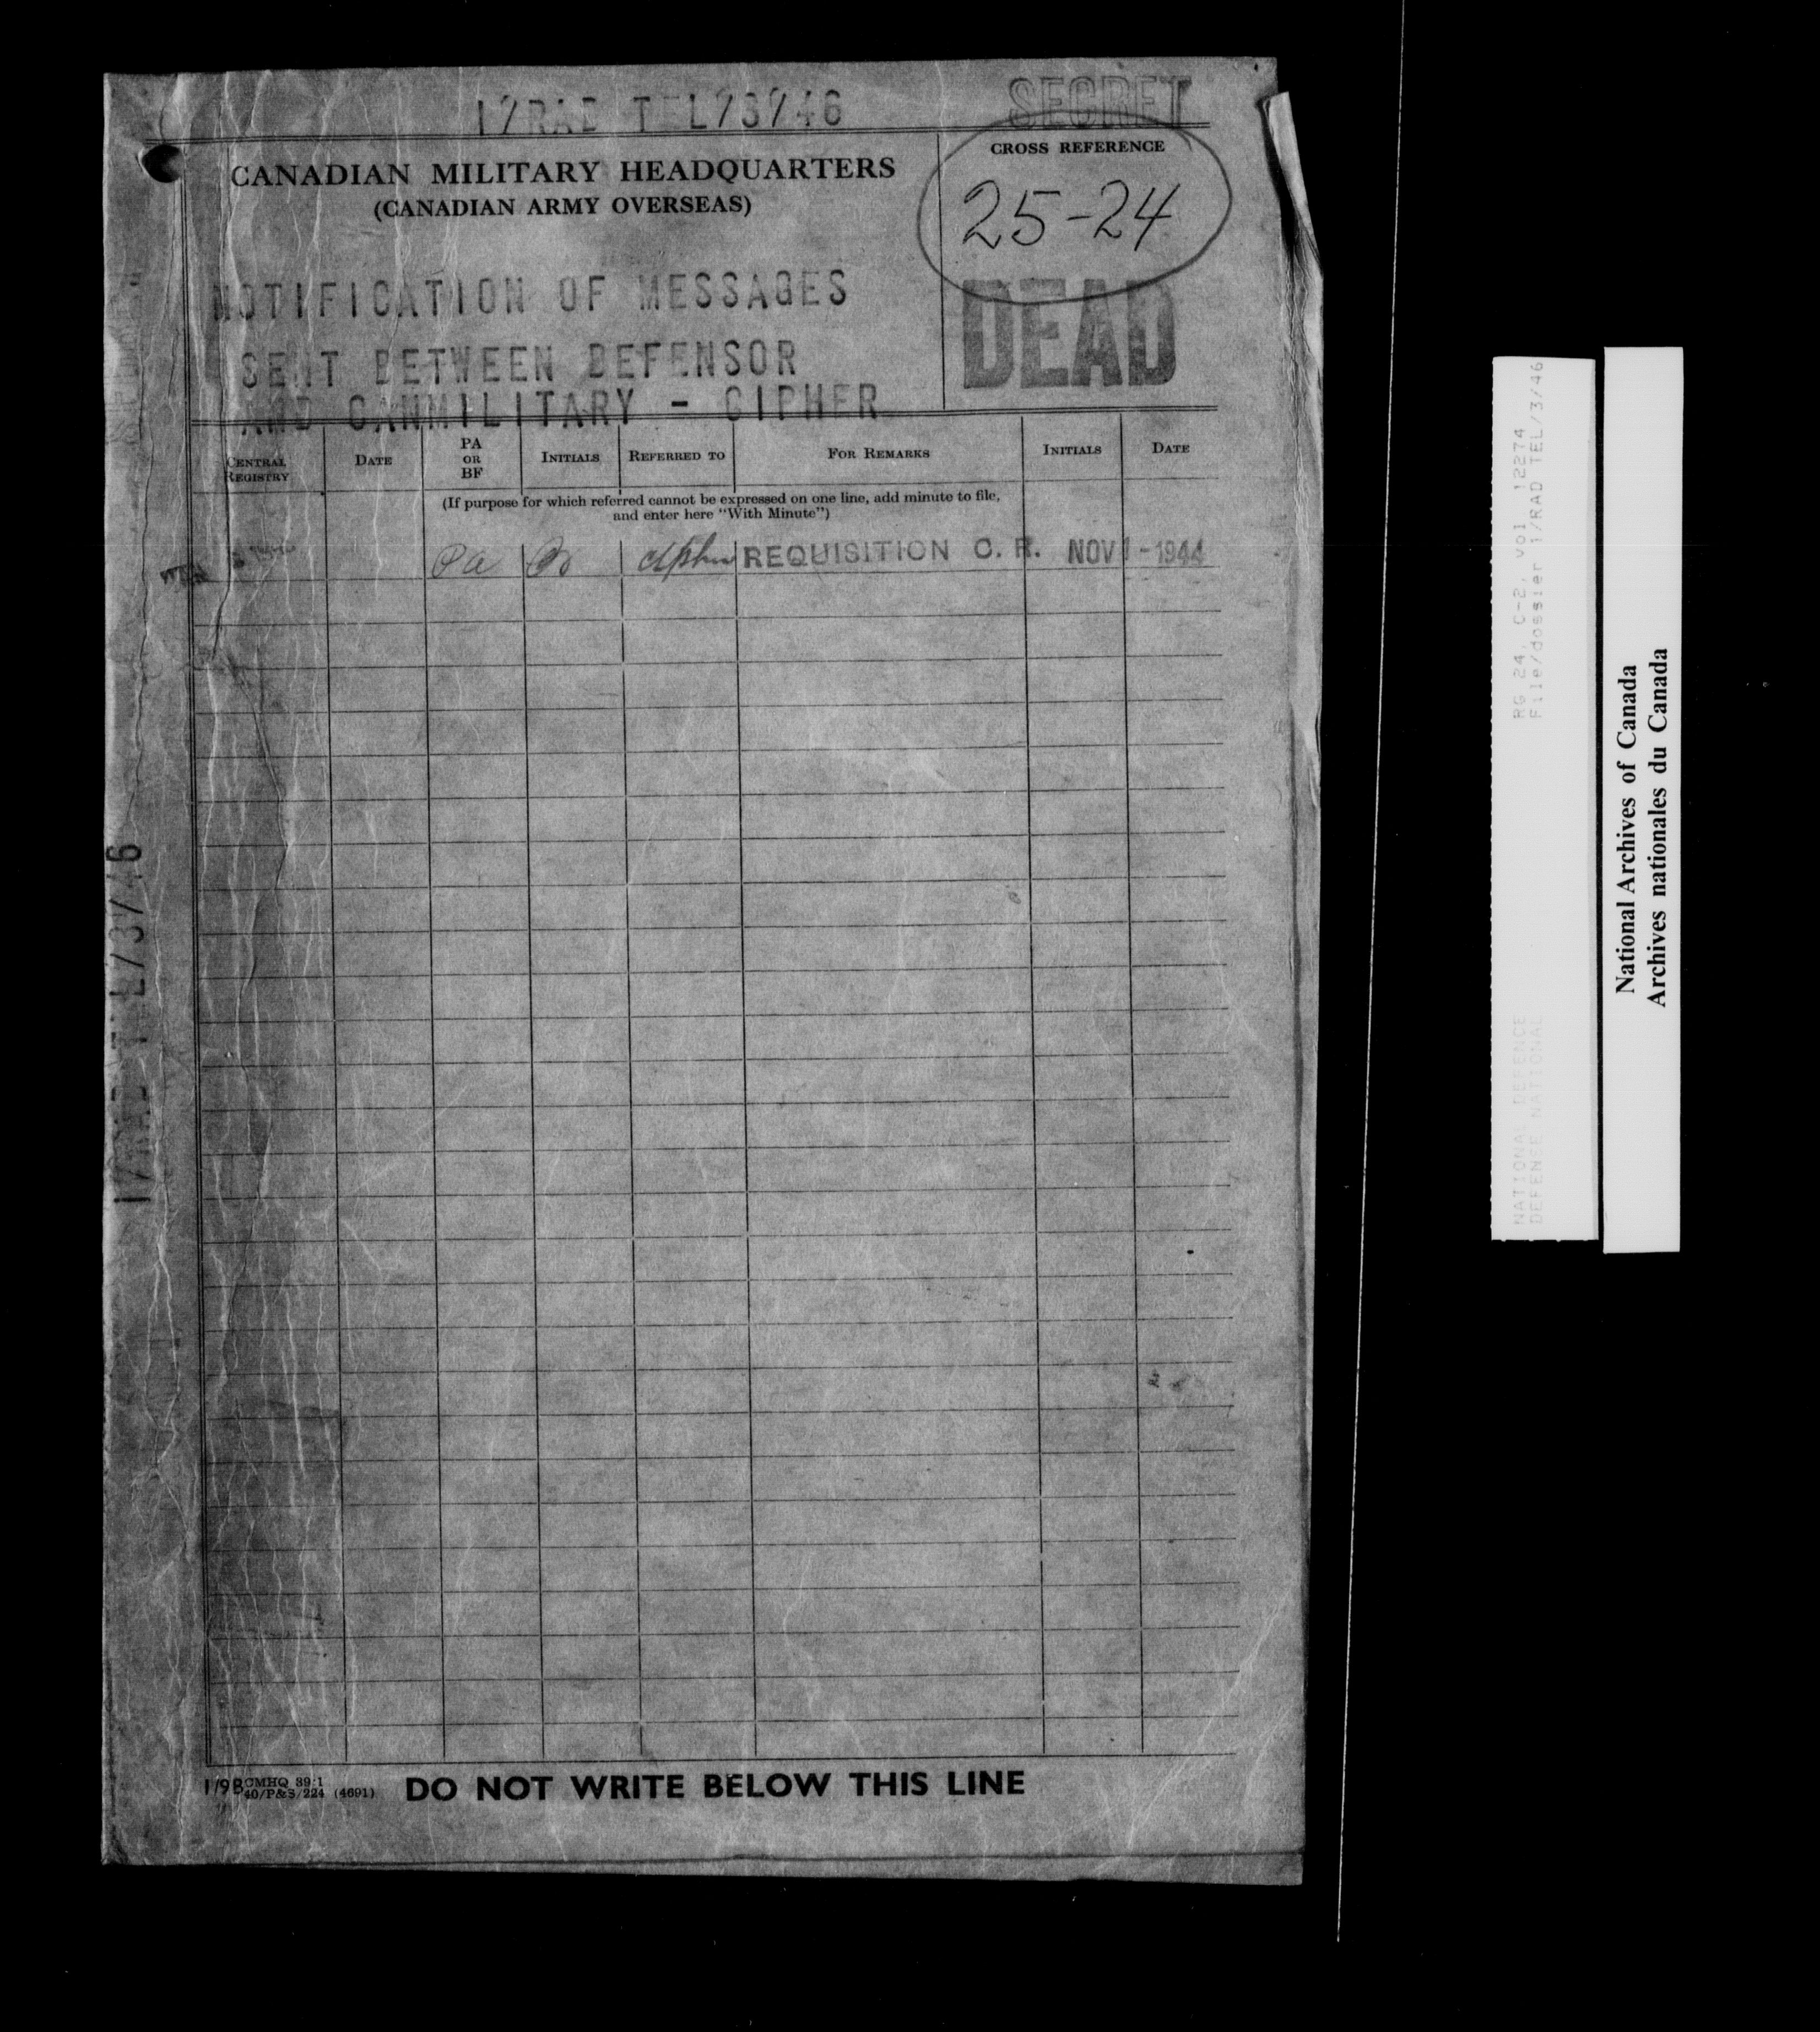 1/RAD TEL/3/46
SECRET
CANADIAN MILITARY HEADQUARTERS
(CANADIAN ARMY OVERSEAS)
CROSS REFERENCE
25-24
NOTIFICATION OF MESSAGES
SENT BETWEEN DEFENSOR
AND CANMILITARY - CIPHER
DEAD
CENTRAL REGISTRY DATE PA OR BF INITIALS REFERRED TO FOR REMARKS INITIALS DATE
(If purpose for which referred cannot be expressed on one line, add minute to file,
and enter here "With Minute")
PA REQUISITION C. R. NOV 1 - 1944
1/RAD TEL/3/46
1/98 CMHQ 39/1
40/P&S/224 (4691)
DO NOT WRITE BELOW THIS LINE
NATIONAL DEFENCE RG 24, C-2, vol 12274
DEFENSE NATIONAL File/dossier 1/RAD TEL/3/46
National Archives of Canada
Archives nationales du Canada